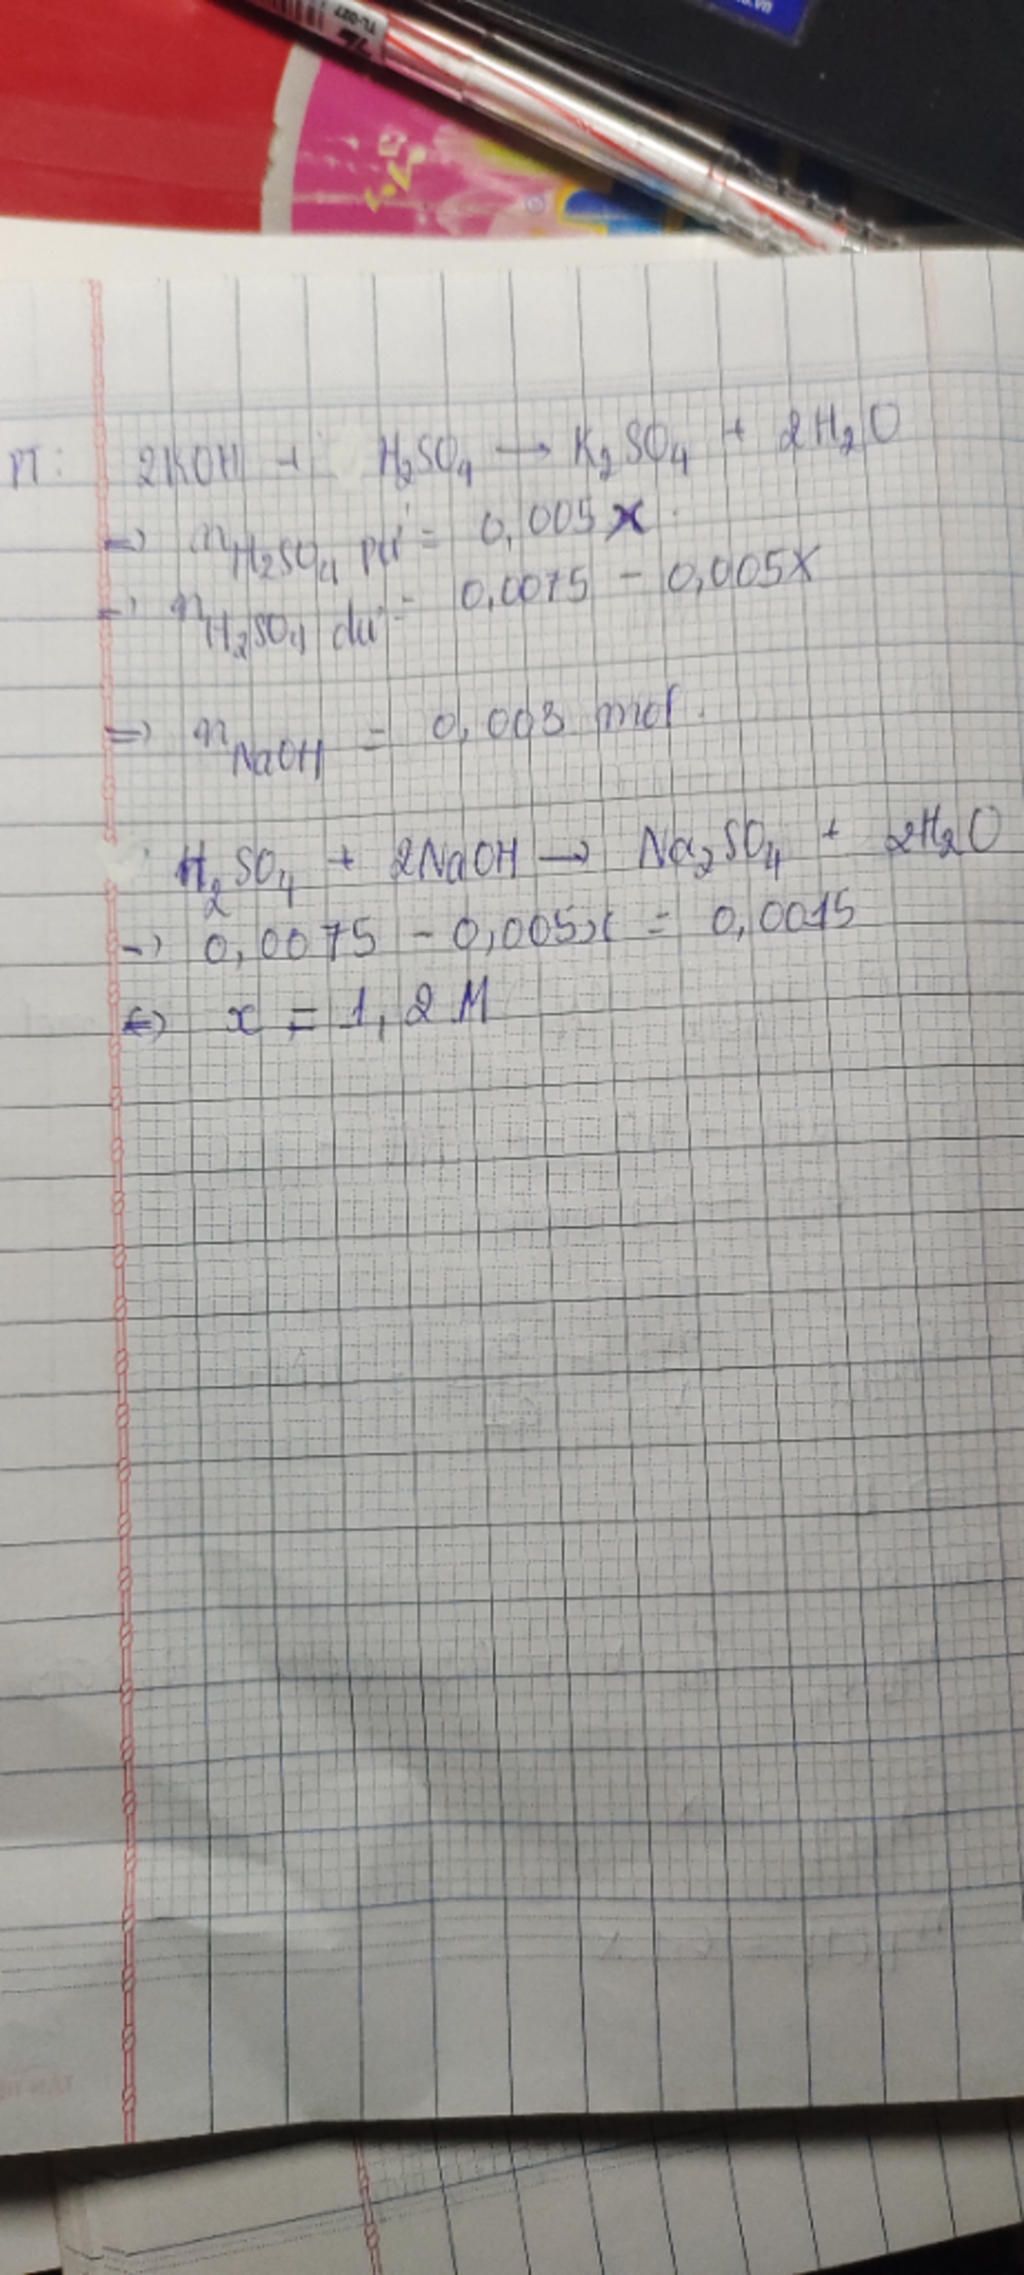 TL-027
PT: 2KOH + H₂SO₄ → K₂SO₄ + 2H₂O
=> n H₂SO₄ pư = 0,005x
=> n H₂SO₄ dư = 0,0075 - 0,005x
=> n NaOH = 0,003 mol.
H₂SO₄ + 2NaOH → Na₂SO₄ + 2H₂O
-> 0,0075 - 0,005x = 0,0015
<=> x = 1,2 M